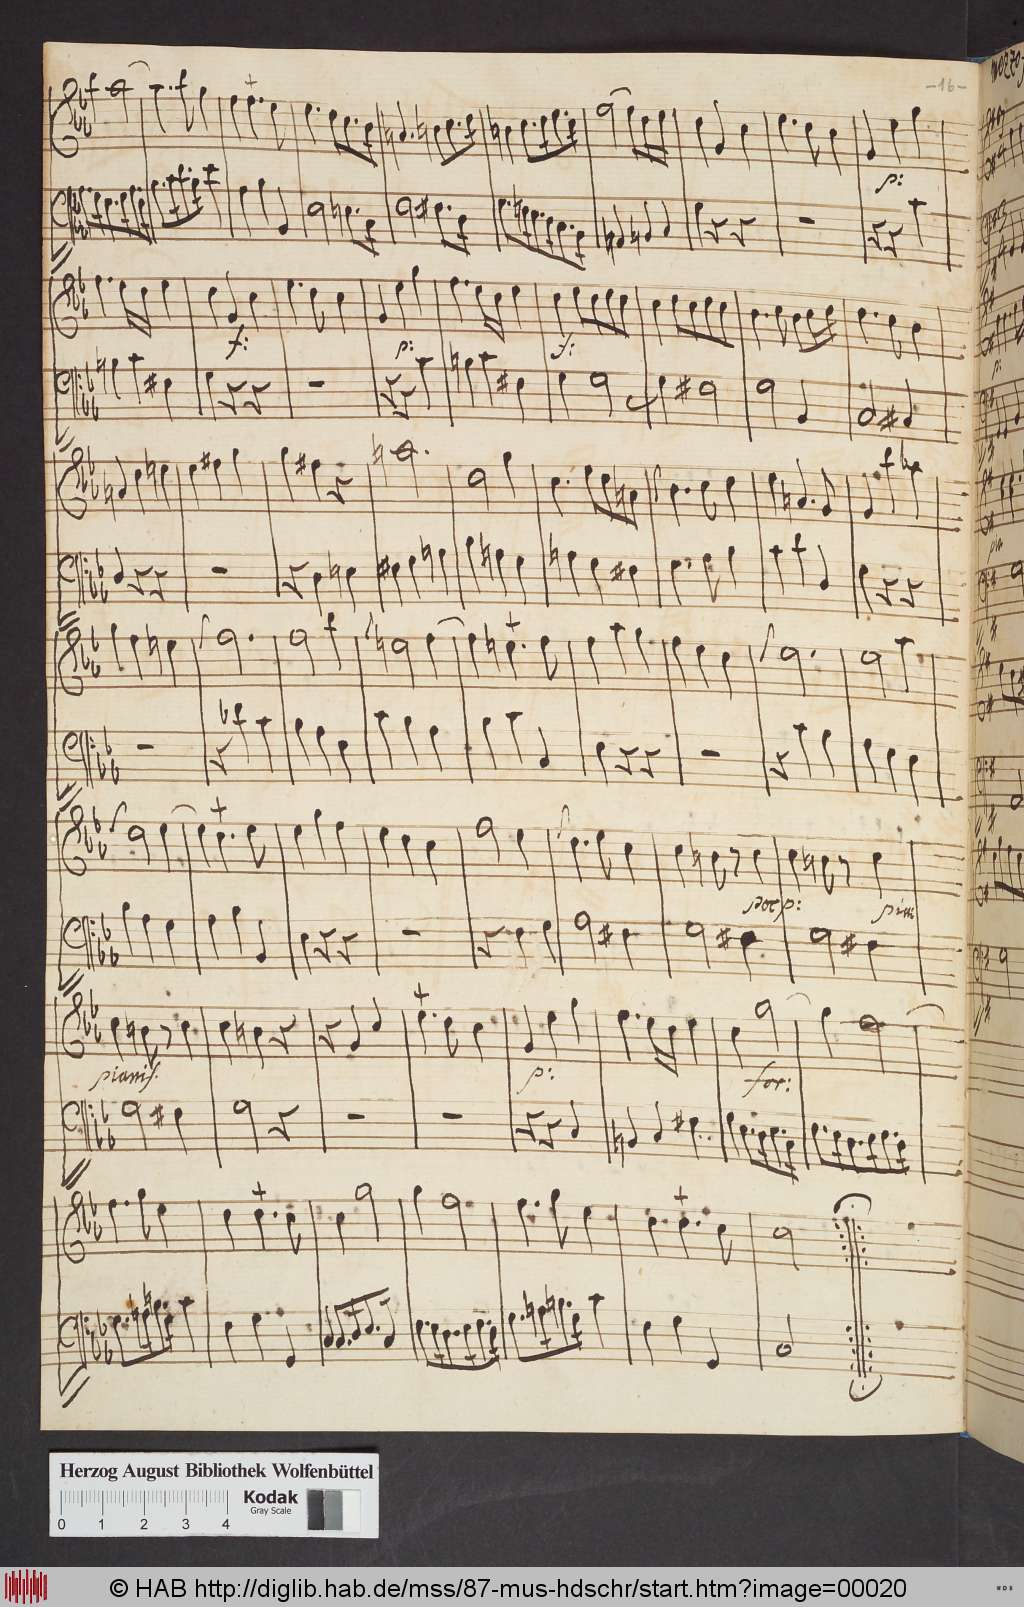 -16-
p:
f:
p:
f:
poc p:
pianis.
p:
for:
Herzog August Bibliothek Wolfenbüttel
Kodak
Gray Scale
0 1 2 3 4
© HAB http://diglib.hab.de/mss/87-mus-hdschr/start.htm?image=00020